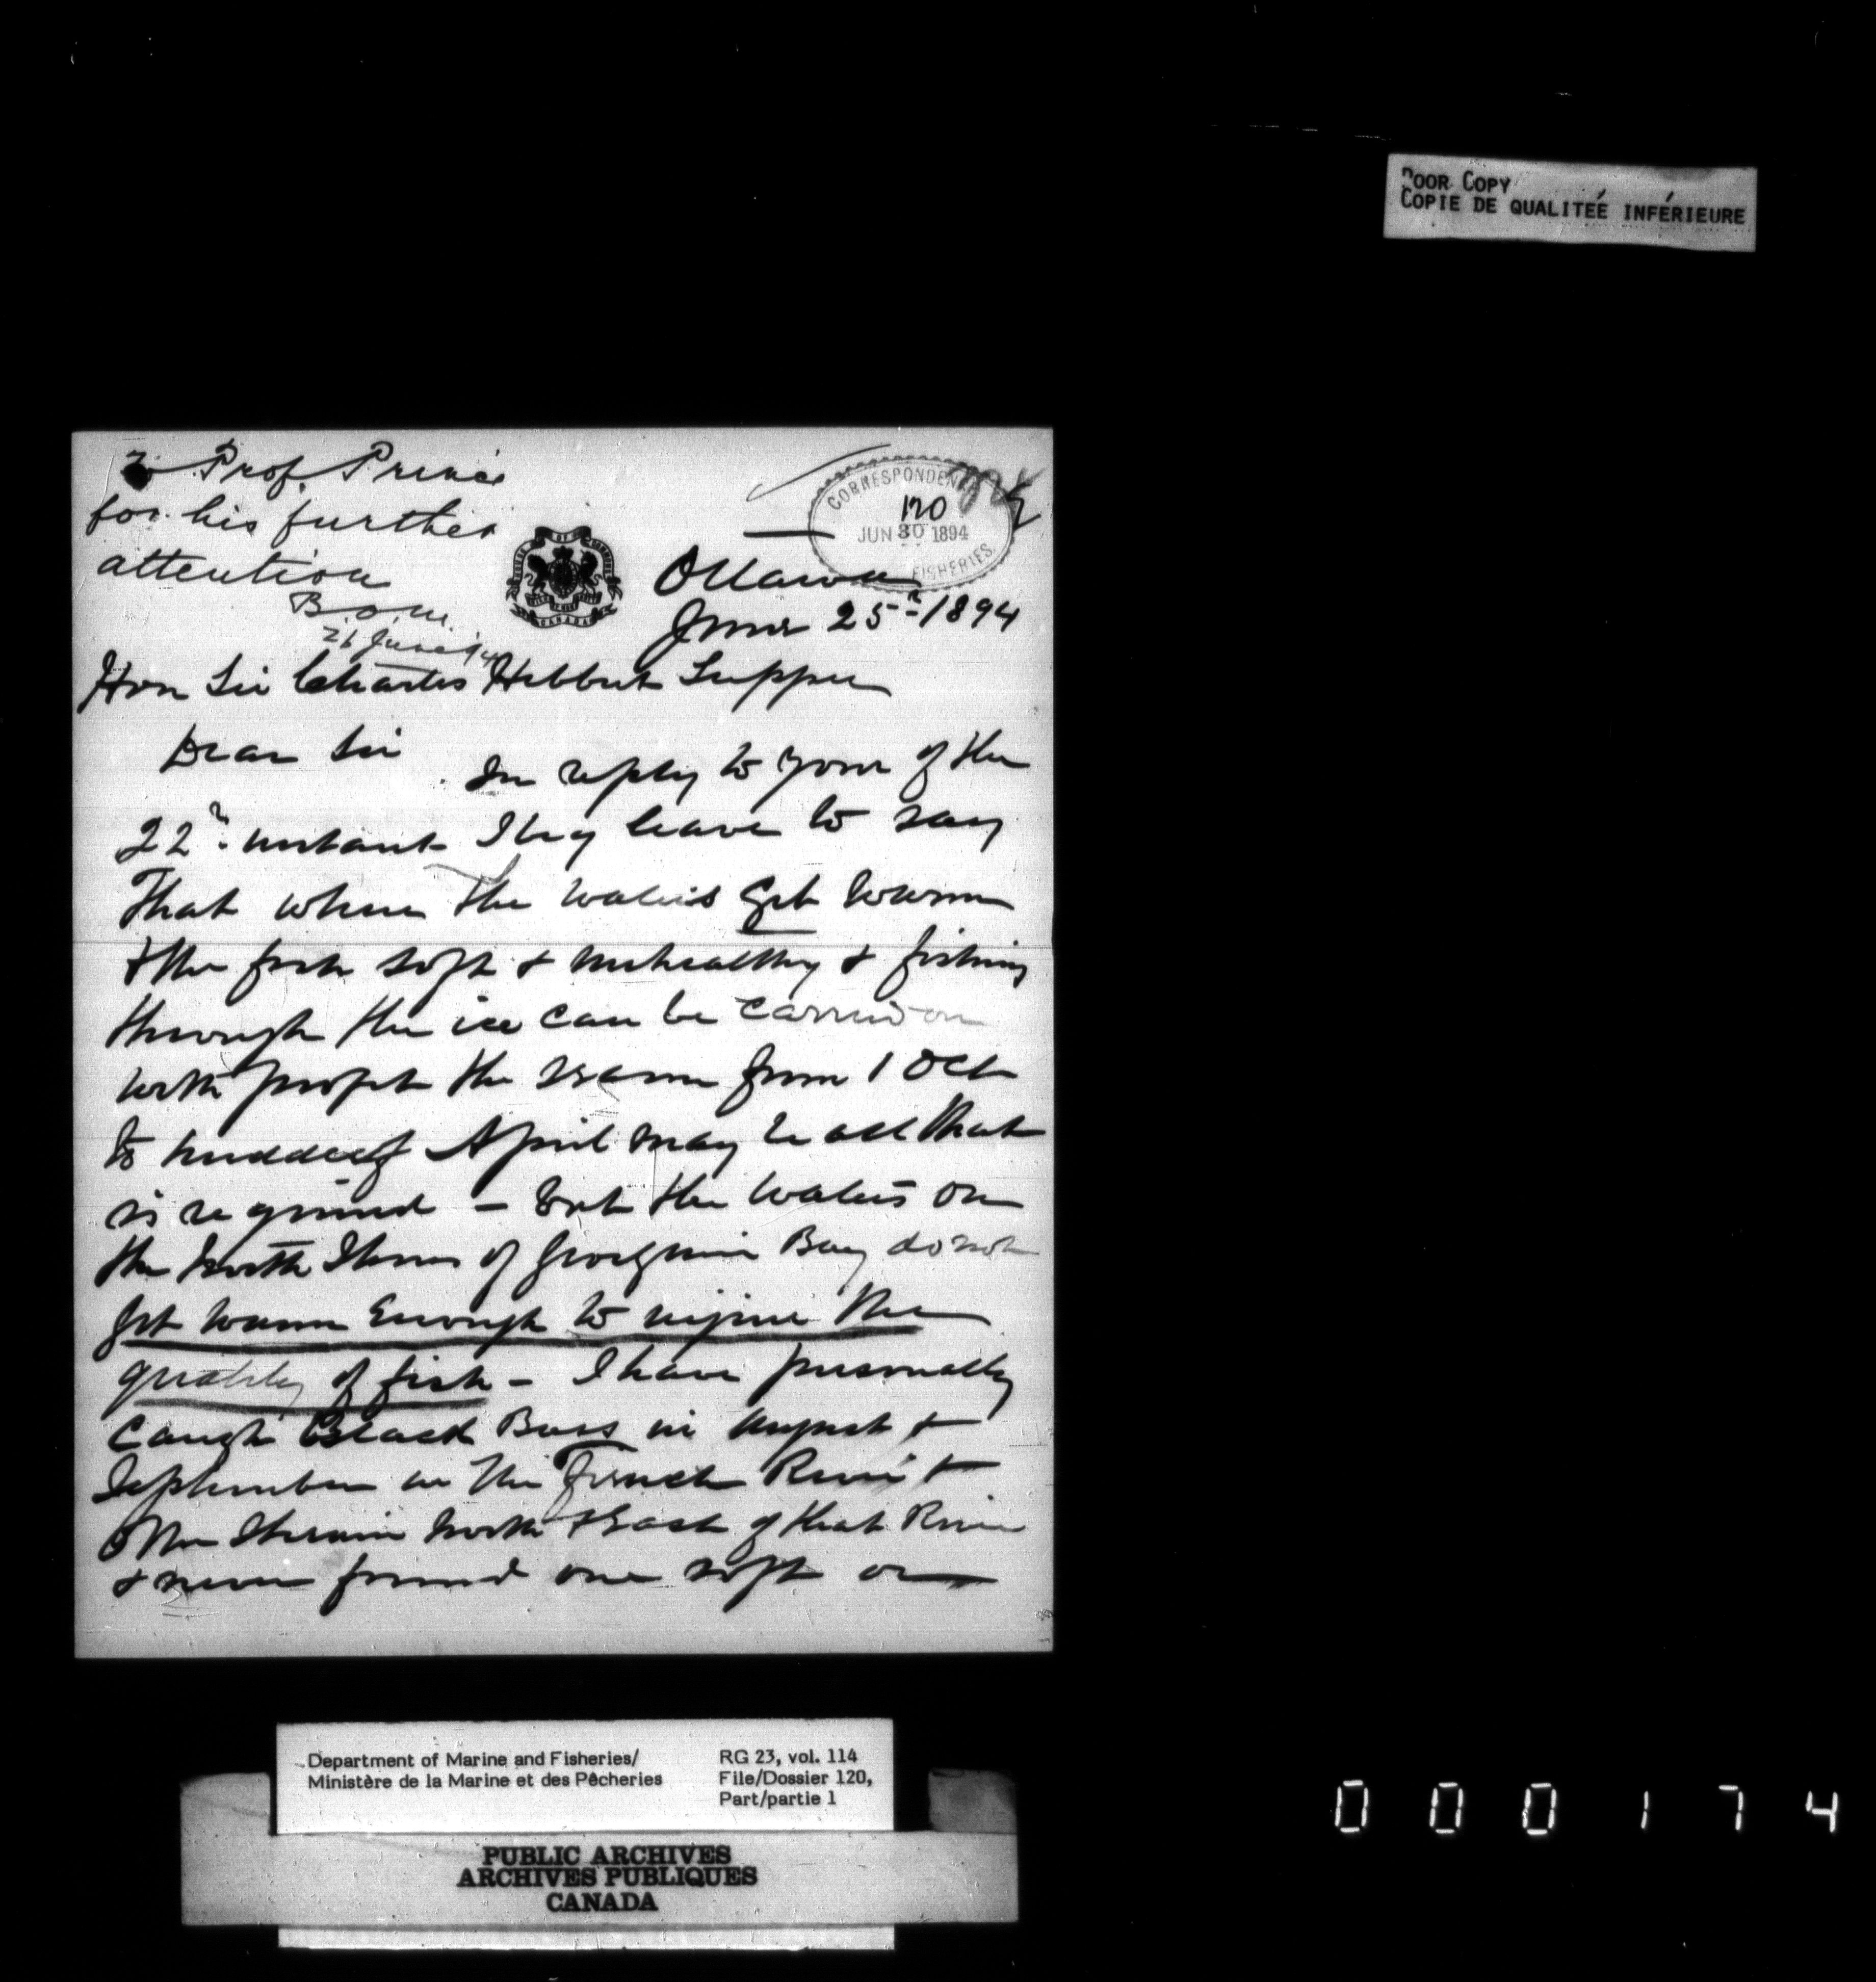 POOR COPY
COPIE DE QUALITEÉ INFÉRIEURE
To Prof. Prince
for his further
attention
26 June 94
CORRESPONDENCE
120
JUN 30 1894
FISHERIES
CANADA
Ottawa
June 25th 1894
Hon Sir Charles Hibbert Tupper
Dear Sir
In reply to your of the
22d. instant I beg leave to say
That where the waters get warm
& the fish soft & unhealthy & fishing
through the ice can be carried on
with profit the season from 1 Oct
to middle of April may be all that
is required - but the waters on
the North Shore of Georgian Bay do not
get warm Enough to injure the
quality of fish - I have personally
Caugh Black Bass in August &
September in the French River &
other Streams North & East of that River
& never found one soft or
Department of Marine and Fisheries/
Ministère de la Marine et des Pêcheries
RG 23, vol. 114
File/Dossier 120,
Part/partie 1
PUBLIC ARCHIVES
ARCHIVES PUBLIQUES
CANADA
000174